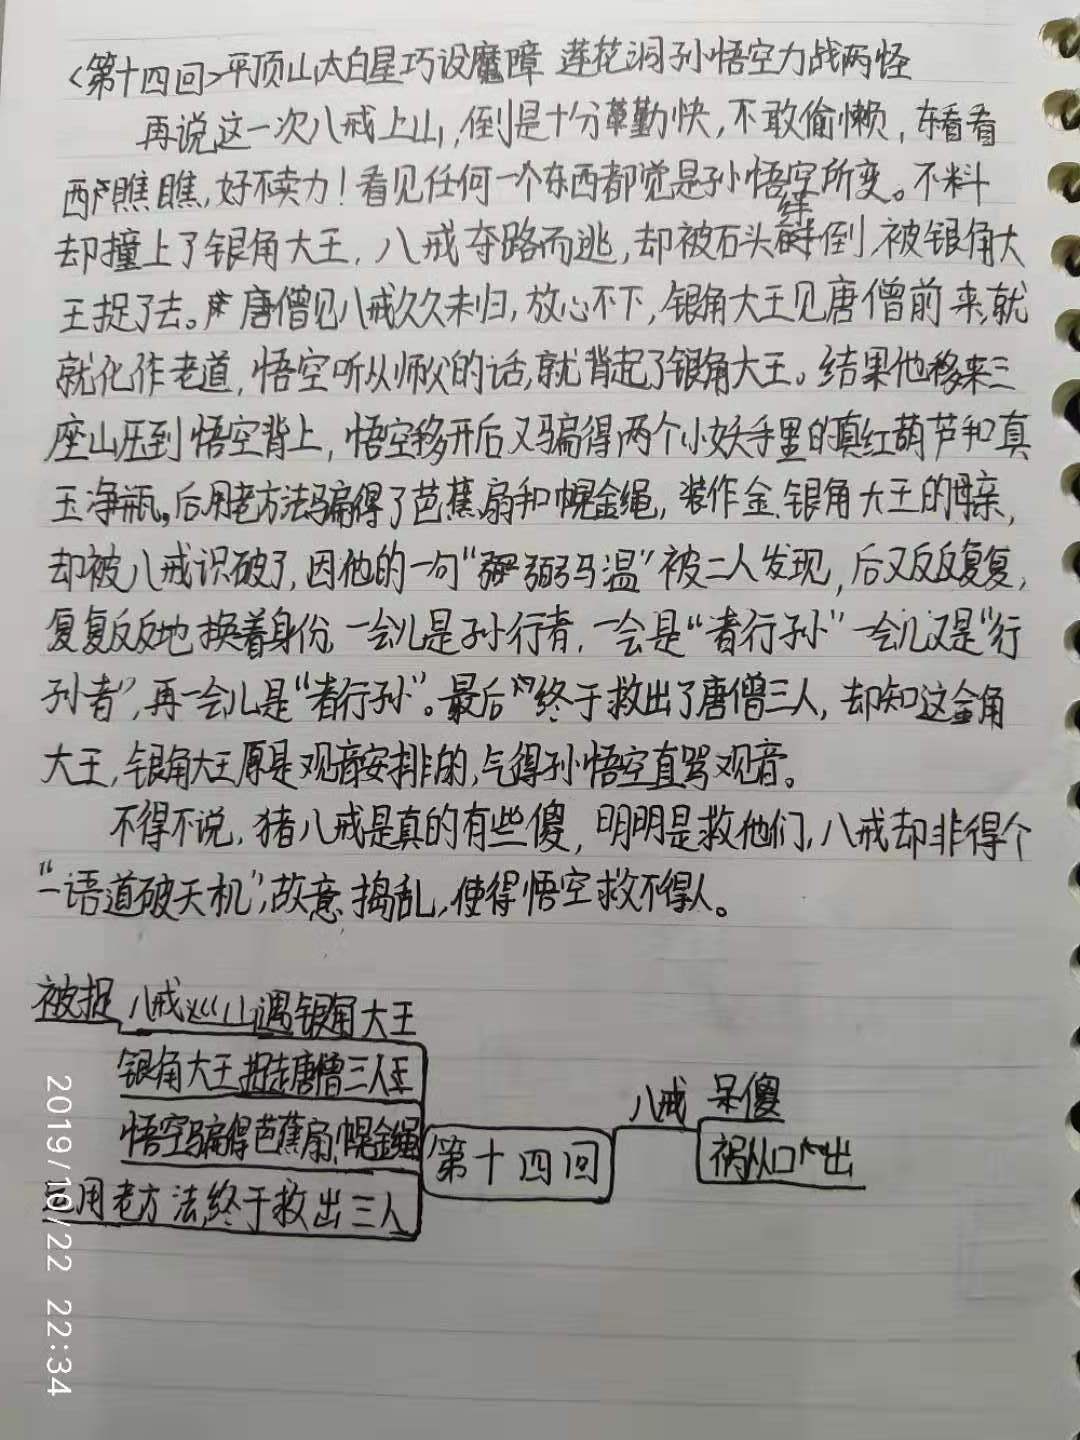 <第十四回>平顶山太白星巧设魔障 莲花洞孙悟空力战两怪
再说这一次八戒上山,倒是十分勤快,不敢偷懒,东看看
西瞧瞧,好不卖力!看见任何一个东西都觉是孙悟空所变。不料
却撞上了银角大王,八戒夺路而逃,却被石头绊倒,被银角大
王捉了去。唐僧见八戒久久未归,放心不下,银角大王见唐僧前来,就
就化作老道,悟空听从师父的话,就背起了银角大王。结果他移来三
座山压到悟空背上,悟空移开后又骗得两个小妖手里的真红葫芦和真
玉净瓶。后用老方法骗得了芭蕉扇和幌金绳,装作金、银角大王的母亲,
却被八戒识破了,因他的一句“弼马温”被二人发现,后又反反复复,
复复反反地换着身份,一会儿是孙行者,一会是“者行孙”一会儿又是“行
孙者”,再一会儿是“者行孙”。最后终于救出了唐僧三人,却知这金角
大王,银角大王原是观音安排的,气得孙悟空直骂观音。
不得不说,猪八戒是真的有些傻,明明是救他们,八戒却非得个
“一语道破天机”,故意捣乱,使得悟空救不得人。
被捉 八戒巡山遇银角大王
银角大王捉走唐僧三人
悟空骗得芭蕉扇、幌金绳
用老方法,终于救出三人
第十四回
八戒 呆傻
祸从口出
2019/10/22 22:34